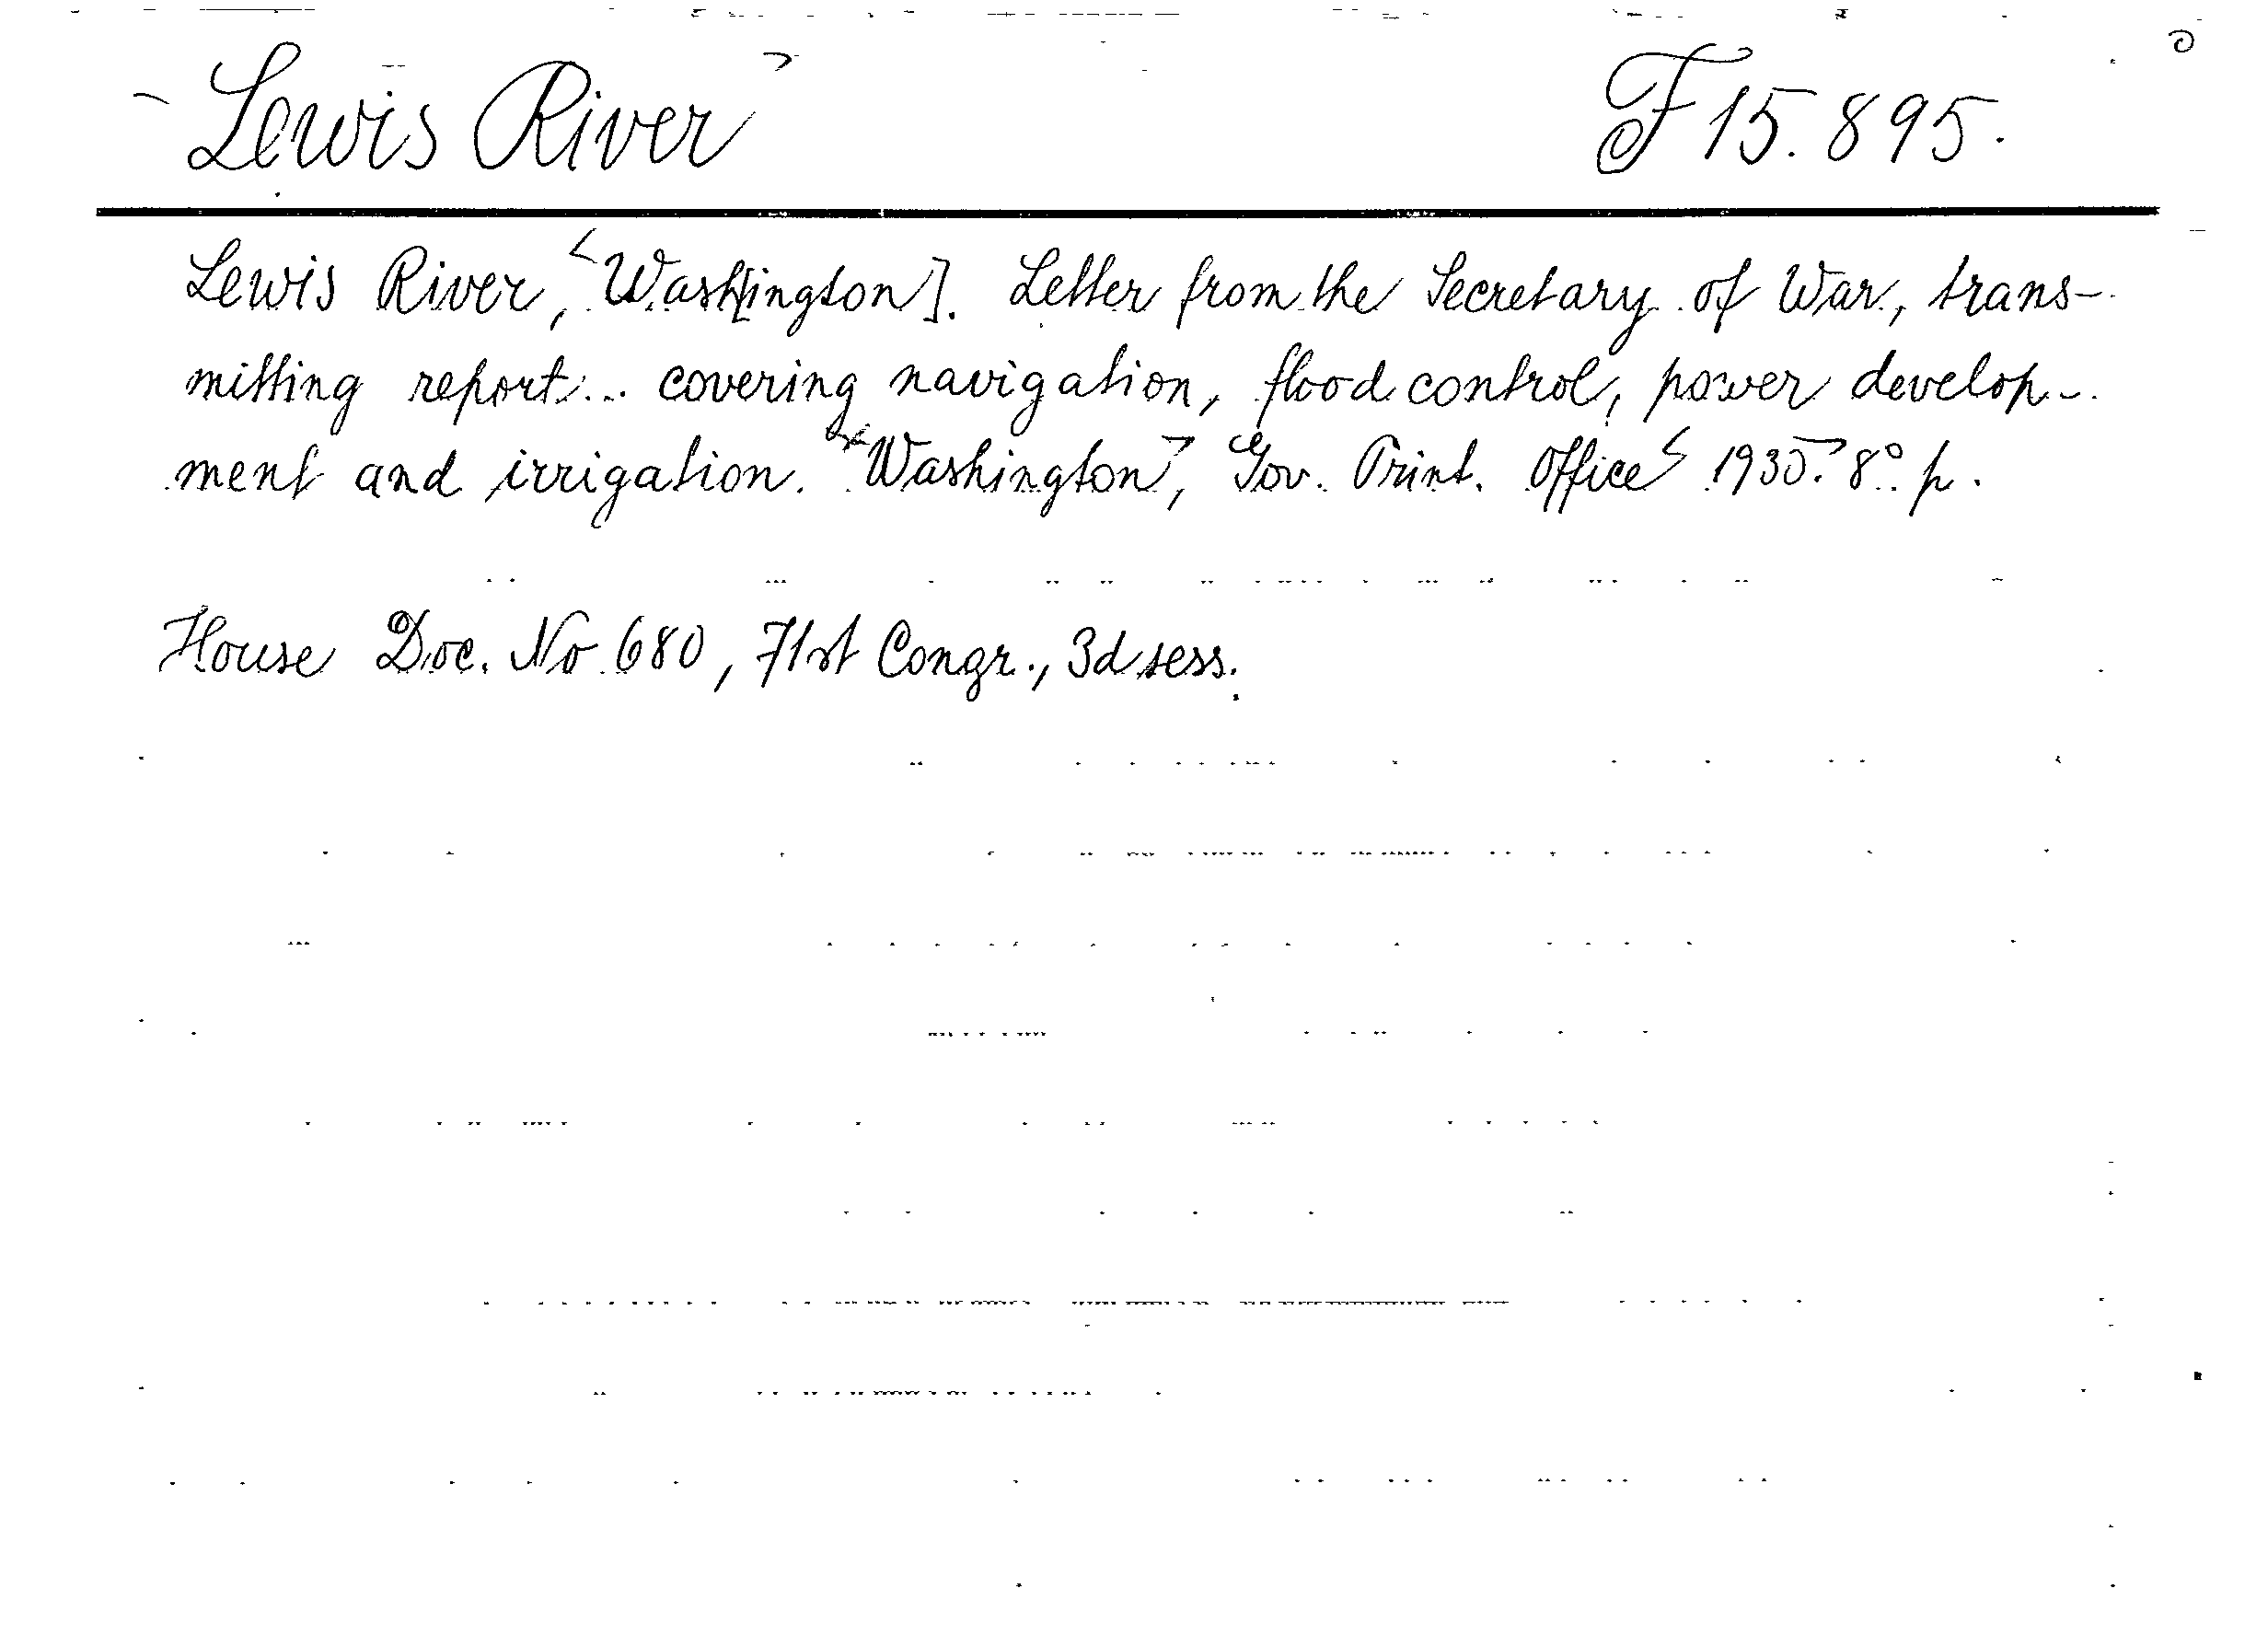 Lewis River F 15.895.
Lewis River, Wash[ington]. Letter from the Secretary of War, trans-
mitting report... covering navigation, flood control, power develop-
ment and irrigation. Washington, Gov. Print. Office 1935. 8° p.
House Doc. No 680, 71st Congr., 3d sess.